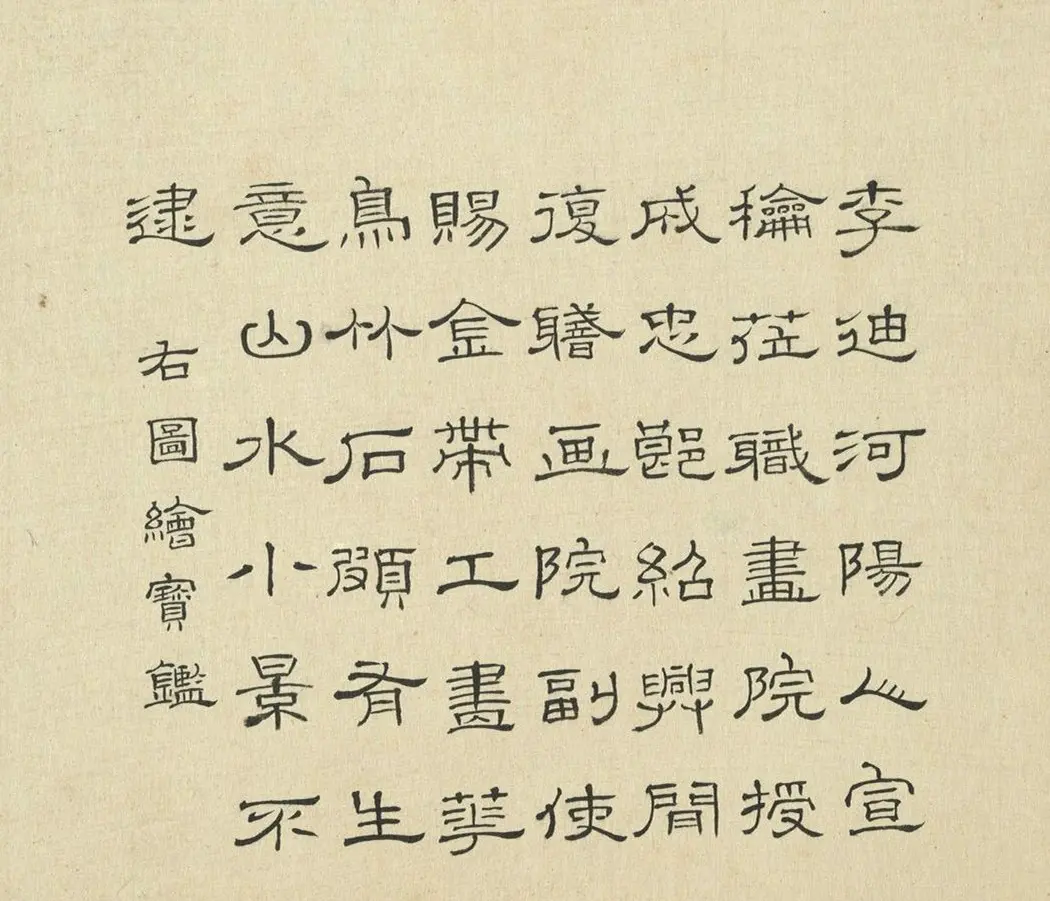 李迪河陽人宣
龢莅職畫院授
成忠郎紹興間
復職画院副使
賜金帶工畫華
鳥竹石頗有生
意山水小景不
逮 右圖繪寶鑑